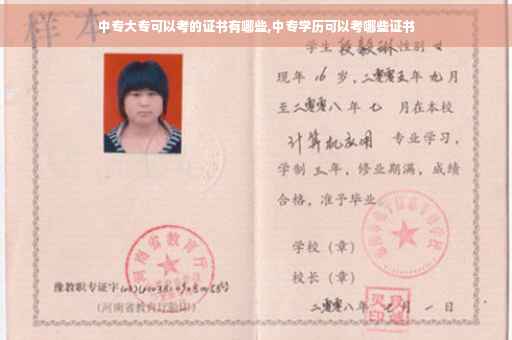 中专大专可以考的证书有哪些,中专学历可以考哪些证书
样本
学生 段毅琳 性别 女
现年 16 岁,二零零五年九月
至二零零八年七 月在本校
计算机应用 专业学习,
学制 三年,修业期满,成绩
合格,准予毕业
学校(章)
校长(章)
二零零八年七月一日
河南省教育厅
豫教职专证字
(河南省教育厅验印)